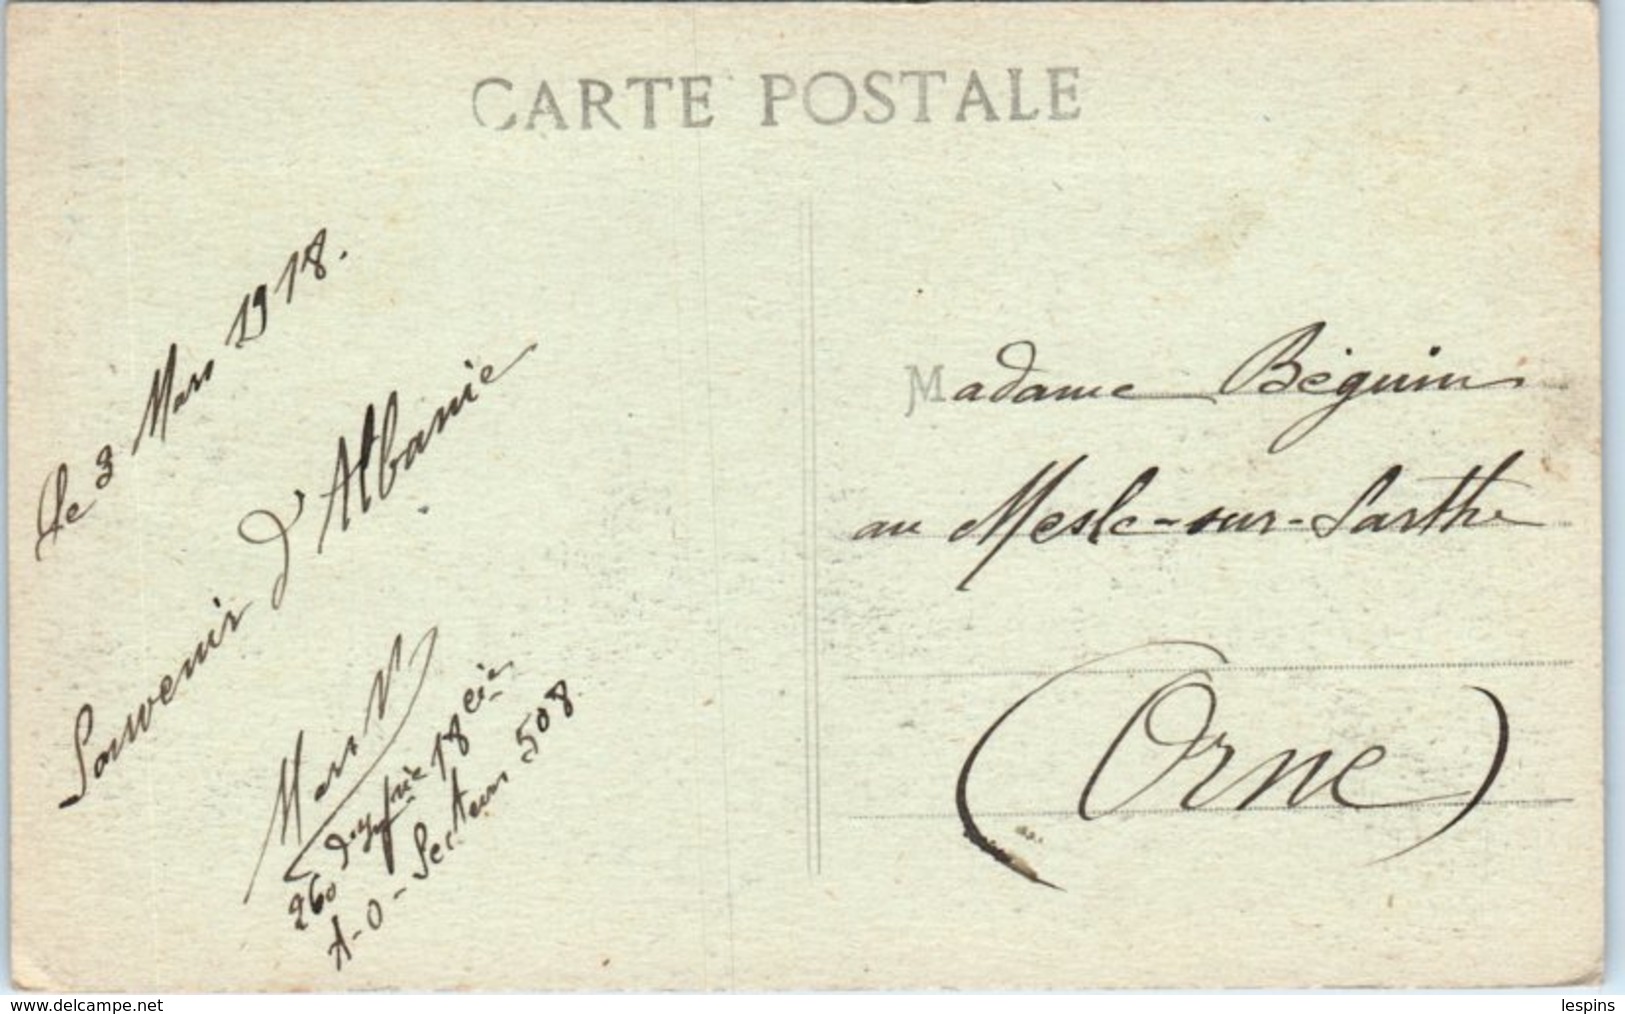 CARTE POSTALE
Le 3 Mars 1918.
Souvenir d'Albanie
260 d'Infrie 18 Cie
A-O- Secteur 508
Madame Béguin
au Mesle-sur-Sarthe
(Orne)
www.delcampe.net
lespins